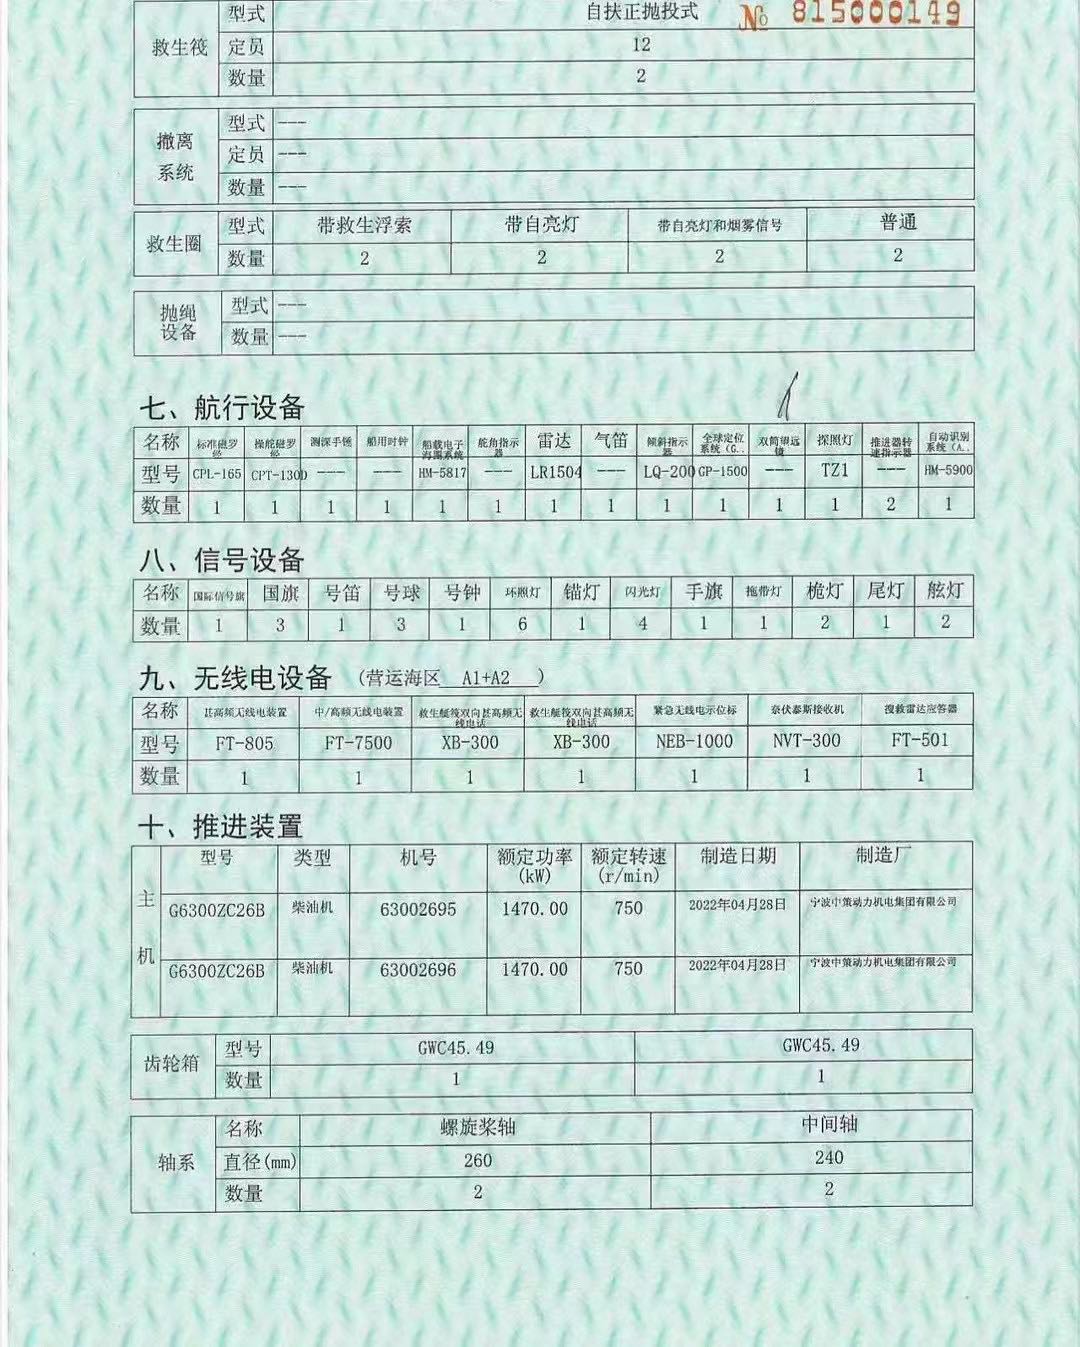 № 815000149
救生筏 型式 自扶正抛投式
定员 12
数量 2
撤离系统 型式 ---
定员 ---
数量 ---
救生圈 型式 带救生浮索 带自亮灯 带自亮灯和烟雾信号 普通
数量 2 2 2 2
抛绳设备 型式 ---
数量 ---
七、航行设备
名称 标准磁罗经 操舵磁罗经 测深手锤 船用时钟 船载电子海图系统 舵角指示器 雷达 气笛 倾斜指示器 全球定位系统（G.. 双筒望远镜 探照灯 推进器转速指示器 自动识别系统（A..
型号 CPL-165 CPT-130D --- --- HM-5817 --- LR1504 --- LQ-200 GP-1500 --- TZ1 --- HM-5900
数量 1 1 1 1 1 1 1 1 1 1 1 1 2 1
八、信号设备
名称 国际信号旗 国旗 号笛 号球 号钟 环照灯 锚灯 闪光灯 手旗 拖带灯 桅灯 尾灯 舷灯
数量 1 3 1 3 1 6 1 4 1 1 2 1 2
九、无线电设备 （营运海区 A1+A2 ）
名称 甚高频无线电装置 中/高频无线电装置 救生艇筏双向甚高频无线电话 救生艇筏双向甚高频无线电话 紧急无线电示位标 奈伏泰斯接收机 搜救雷达应答器
型号 FT-805 FT-7500 XB-300 XB-300 NEB-1000 NVT-300 FT-501
数量 1 1 1 1 1 1 1
十、推进装置
主机 型号 类型 机号 额定功率(kW) 额定转速(r/min) 制造日期 制造厂
G6300ZC26B 柴油机 63002695 1470.00 750 2022年04月28日 宁波中策动力机电集团有限公司
G6300ZC26B 柴油机 63002696 1470.00 750 2022年04月28日 宁波中策动力机电集团有限公司
齿轮箱 型号 GWC45.49 GWC45.49
数量 1 1
轴系 名称 螺旋桨轴 中间轴
直径(mm) 260 240
数量 2 2